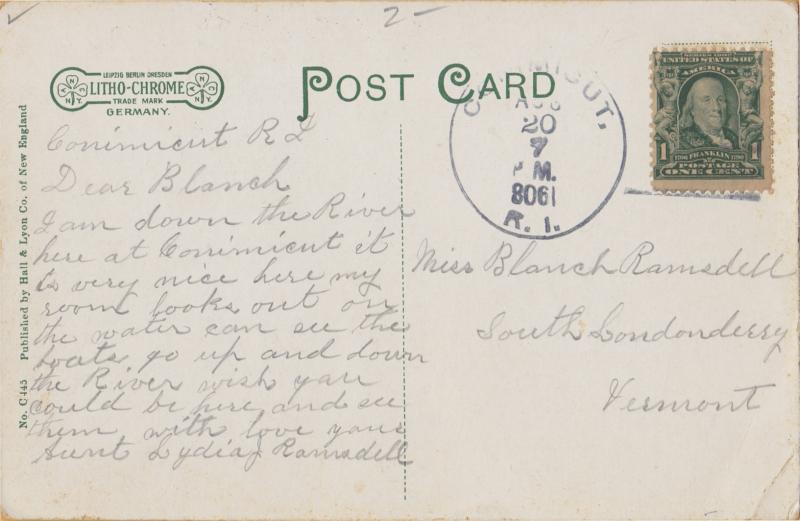 2-
LEIPZIG BERLIN DRESDEN
LITHO-CHROME
TRADE MARK
GERMANY.
POST CARD
CONIMICUT,
AUG
20
7
P M.
8061
R. I.
SERIES 1902
UNITED STATES OF
AMERICA
1 1
1706 FRANKLIN 1790
POSTAGE
ONE CENT
No. C445 Published by Hall & Lyon Co. of New England
Conimicut R I
Dear Blanch
I am down the River
here at Conimicut it
is very nice here my
room looks out on
the water can see the
boats go up and down
the River wish you
could be here and see
them with love your
Aunt Lydia Ramsdell
Miss Blanch Ramsdell
South Londonderry
Vermont